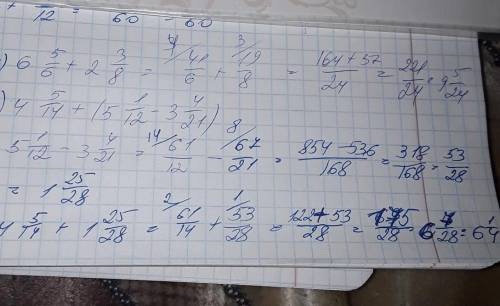 + /12 = 60 = 60
) 6 5/6 + 2 3/8 = 4/ 41/6 + 3/ 19/8 = (164+57)/24 = 221/24 = 9 5/24
) 4 5/14 + (5 1/12 - 3 4/21)
5 1/12 - 3 4/21 = 14/ 61/12 - 8/ 67/21 = (854-536)/168 = 318/168 = 53/28
= 1 25/28
4 5/14 + 1 25/28 = 2/ 61/14 + 1/ 53/28 = (122+53)/28 = 175/28 6 7/28 = 6 1/4